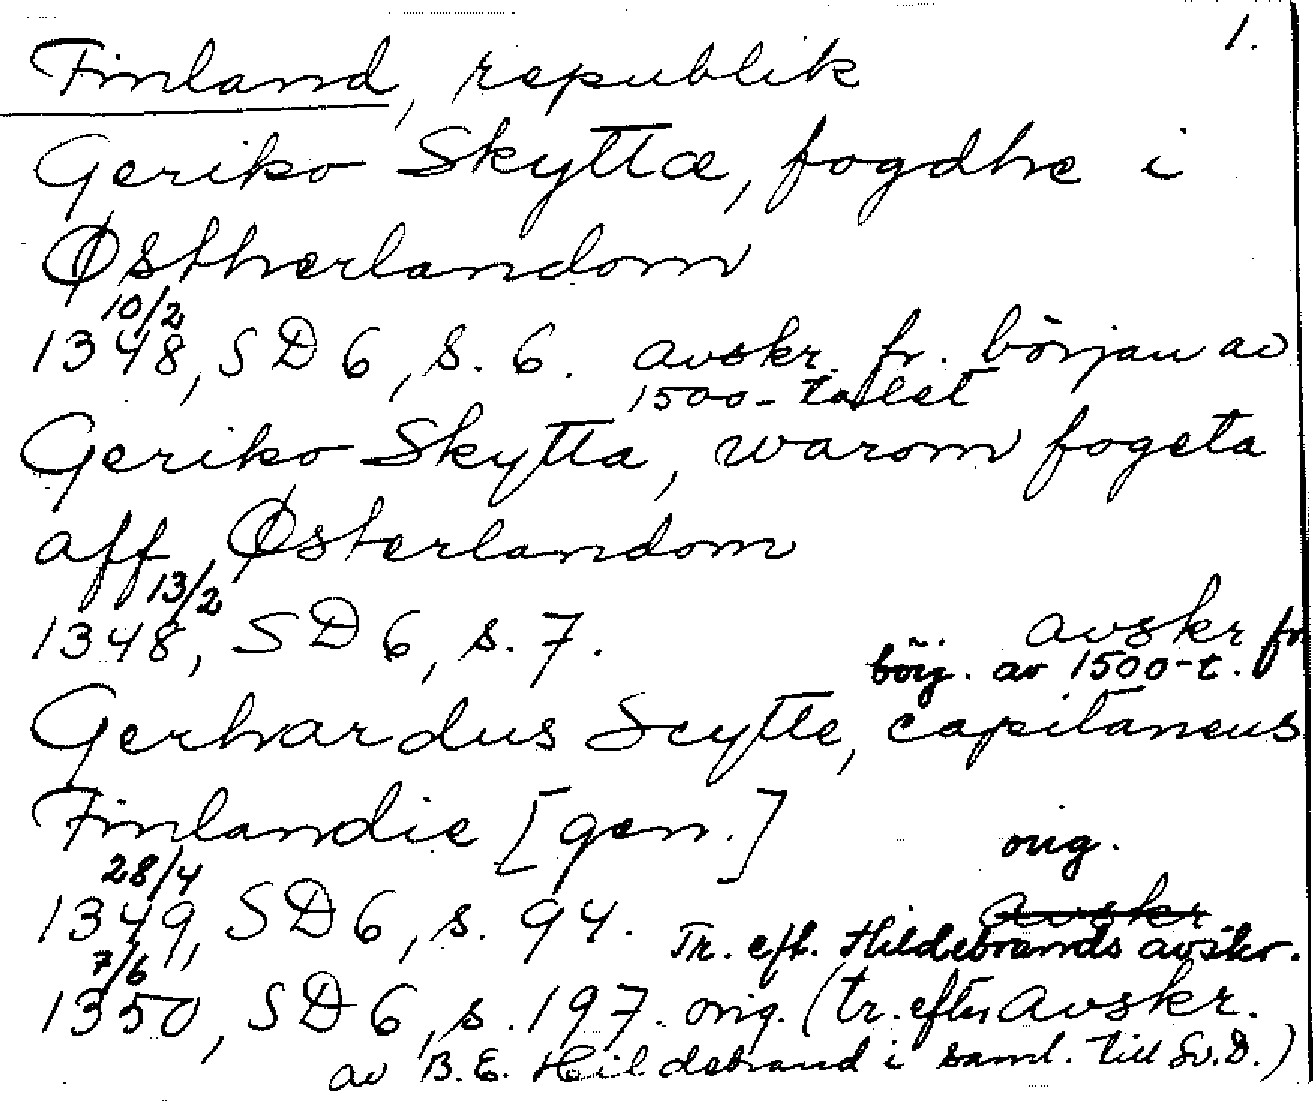 1.
Finland, republik
Geriko Skyttæ, fogdhe i
Østherlandom
10/2
1348, SD 6, s. 6. avskr. fr. början av
1500-talet
Geriko Skytta, warom fogeta
aff Østerlandom
13/2
1348, SD 6, s. 7. avskr fr
börj. av 1500-t.
Gerhardus Scytte, capitaneus
Finlandie [gen.]
28/4 orig.
1349, SD 6, s. 94. avskr
Tr. eft. Hildebrands avskr.
7/6
1350, SD 6, s. 197. orig. (tr. efter avskr.
av B.E. Hildebrand i saml. till Sv.D.)